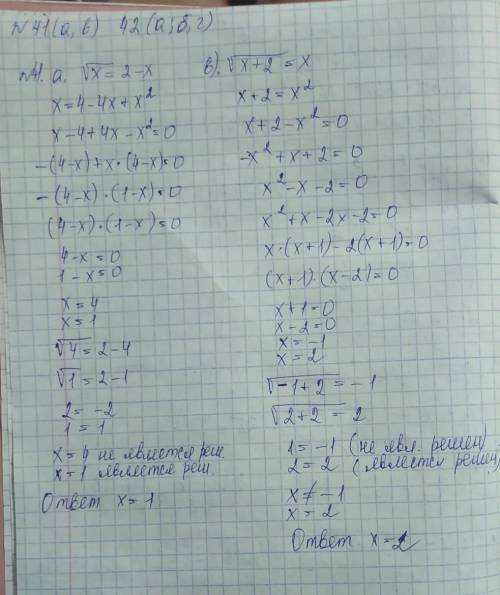 №41(а, в) 42(а, б, г)
№41. а. √x = 2-x
x = 4-4x+x²
x-4+4x-x²=0
-(4-x)+x·(4-x)=0
-(4-x)·(1-x)=0
(4-x)·(1-x)=0
4-x=0
1-x=0
x=4
x=1
√4=2-4
√1=2-1
2=-2
1=1
x=4 не является реш.
x=1 является реш.
Ответ x=1
в). √x+2 = x
x+2=x²
x+2-x²=0
-x²+x+2=0
x²-x-2=0
x²+x-2x-2=0
x·(x+1)-2(x+1)=0
(x+1)·(x-2)=0
x+1=0
x-2=0
x=-1
x=2
√-1+2 = -1
√2+2 = 2
1=-1 (не явл. решен)
2=2 (является решен)
x≠-1
x=2
Ответ x=2